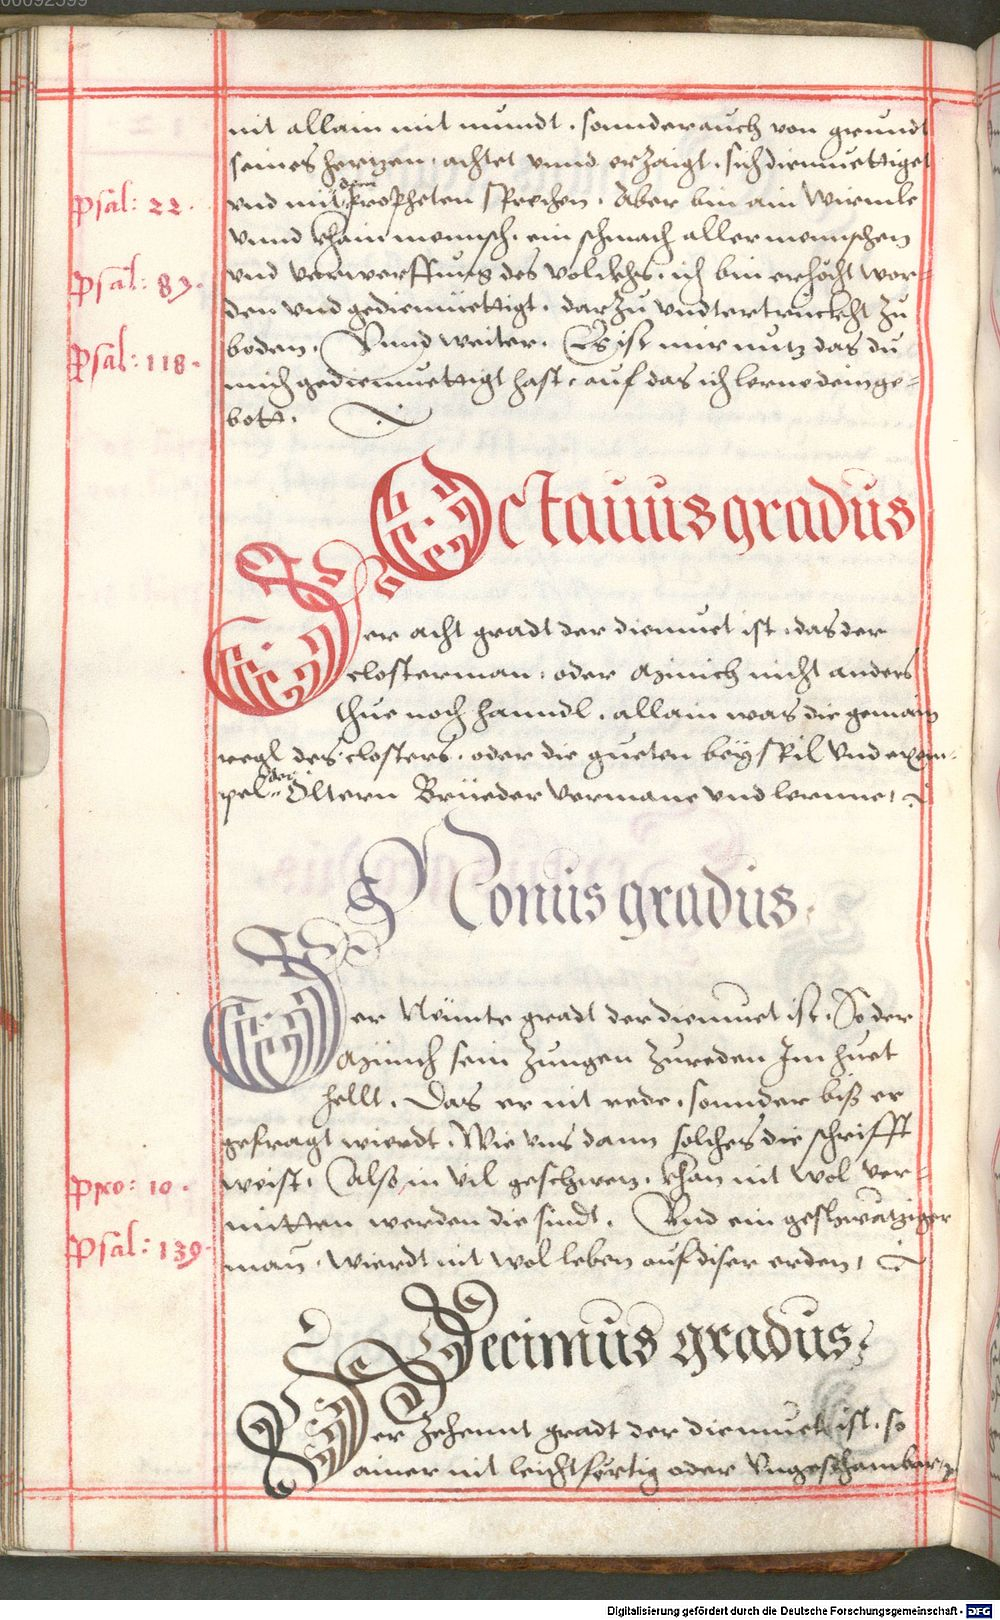 nit allain mit mundt . sonnder auch von grundt
seines hertzen . achtet vnnd erzaigt . sich diemuettiget
dem
Psal: 22 .
vnd mit Propheten sprechen . Aber bin ain Wirmle
vnnd khain mennsch . ein schmach aller menschen
Psal: 87 .
vnd verwerffung des volckhs . ich bin erhöcht wor-
den vnd gediemüettigt . darzu vndtertruckht zu
Psal: 118 .
boden . Vnnd weiter . Es ist mir nutz das du
mich gediemuettigt hast . auf das ich lerne dein ge-
bott .
Octauus gradus
Der acht gradt der diemuet ist . das der
closterman . oder Münich nicht anders
thue noch hanndl . allain was die gemain
regl des closters . oder die gueten beÿspil vnd exem-
der
pel Öltern Brüeder vermane vnd lerne .
Nonus gradus .
Der Neünte gradt der diemuet ist . So der
Münch sein Zungen zureden Im huet
hellt . Das er nit rede . sonnder biß er
gefragt wierdt . Wie vns dann solches die schrifft
Pro: 10 .
weist . Also in vil geschwez . khan nit wol ver-
mitten werden die sindt . Vnd ein geschwätziger
Psal: 139 .
man . wierdt nit wol leben auf diser erden .
Decimus gradus .
Der Zehennt gradt der diemuet ist . so
ainer nit leichtfertig oder vngeschambar
Digitalisierung gefördert durch die Deutsche Forschungsgemeinschaft - DFG